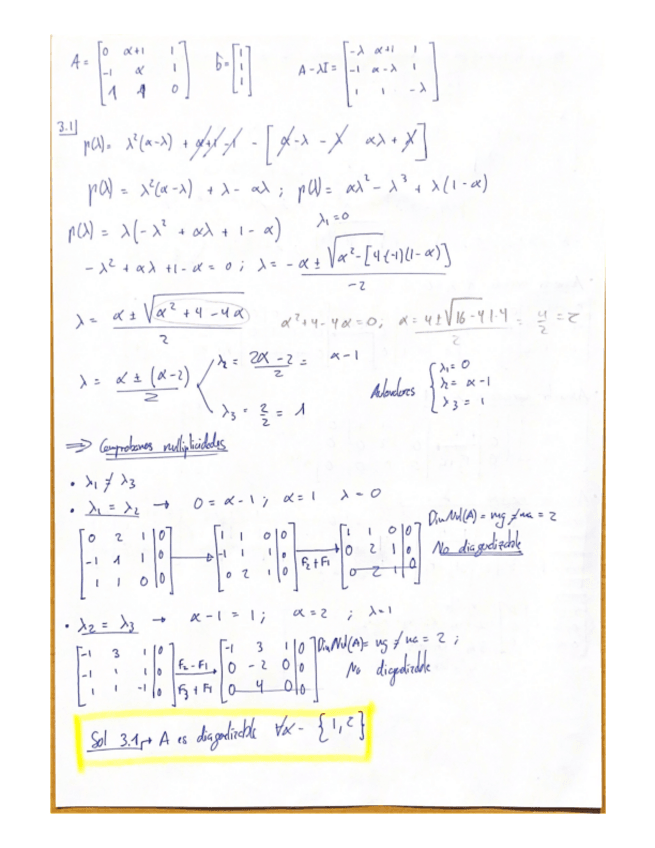 A = [0 α+1 1; -1 α 1; 1 1 0] b̄ = [1; 1; 1] A-λI = [-λ α+1 1; -1 α-λ 1; 1 1 -λ]
3.1| p(λ) = λ²(α-λ) + α+1 -1 - [α-λ -λ αλ+λ]
p(λ) = λ²(α-λ) + λ - αλ ; p(λ) = αλ² - λ³ + λ(1-α)
p(λ) = λ(-λ² + αλ + 1-α) λ₁=0
-λ² + αλ + 1-α = 0 ; λ = -α ± √(α² - [4(-1)(1-α)]) / -2
λ = α ± √(α² + 4 - 4α) / 2 α²+4-4α=0; α = 4 ± √(16-4·1·4) / 2 = 4/2 = 2
λ = α ± (α-2) / 2 λ₂ = 2α-2 / 2 = α-1
λ₃ = 2/2 = 1
Autovalores { λ₁=0 λ₂= α-1 λ₃=1
⇒ Comprobamos multiplicidades
• λ₁ ≠ λ₃
• λ₁ = λ₂ → 0 = α-1 ; α=1 λ=0
[0 2 1|0; -1 1 1|0; 1 1 0|0] → [1 1 0|0; -1 1 1|0; 0 2 1|0] F₂+F₁ → [1 1 0|0; 0 2 1|0; 0 2 1|0] Dim Nul(A) = mg ≠ ma = 2
No diagonalizable
• λ₂ = λ₃ → α-1 = 1 ; α=2 ; λ=1
[-1 3 1|0; -1 1 1|0; 1 1 -1|0] F₂-F₁ F₃+F₁ → [-1 3 1|0; 0 -2 0|0; 0 4 0|0] Dim Nul(A)= mg ≠ ma = 2 ;
No diagonalizable
Sol 3.1 → A es diagonalizable ∀α - {1,2}